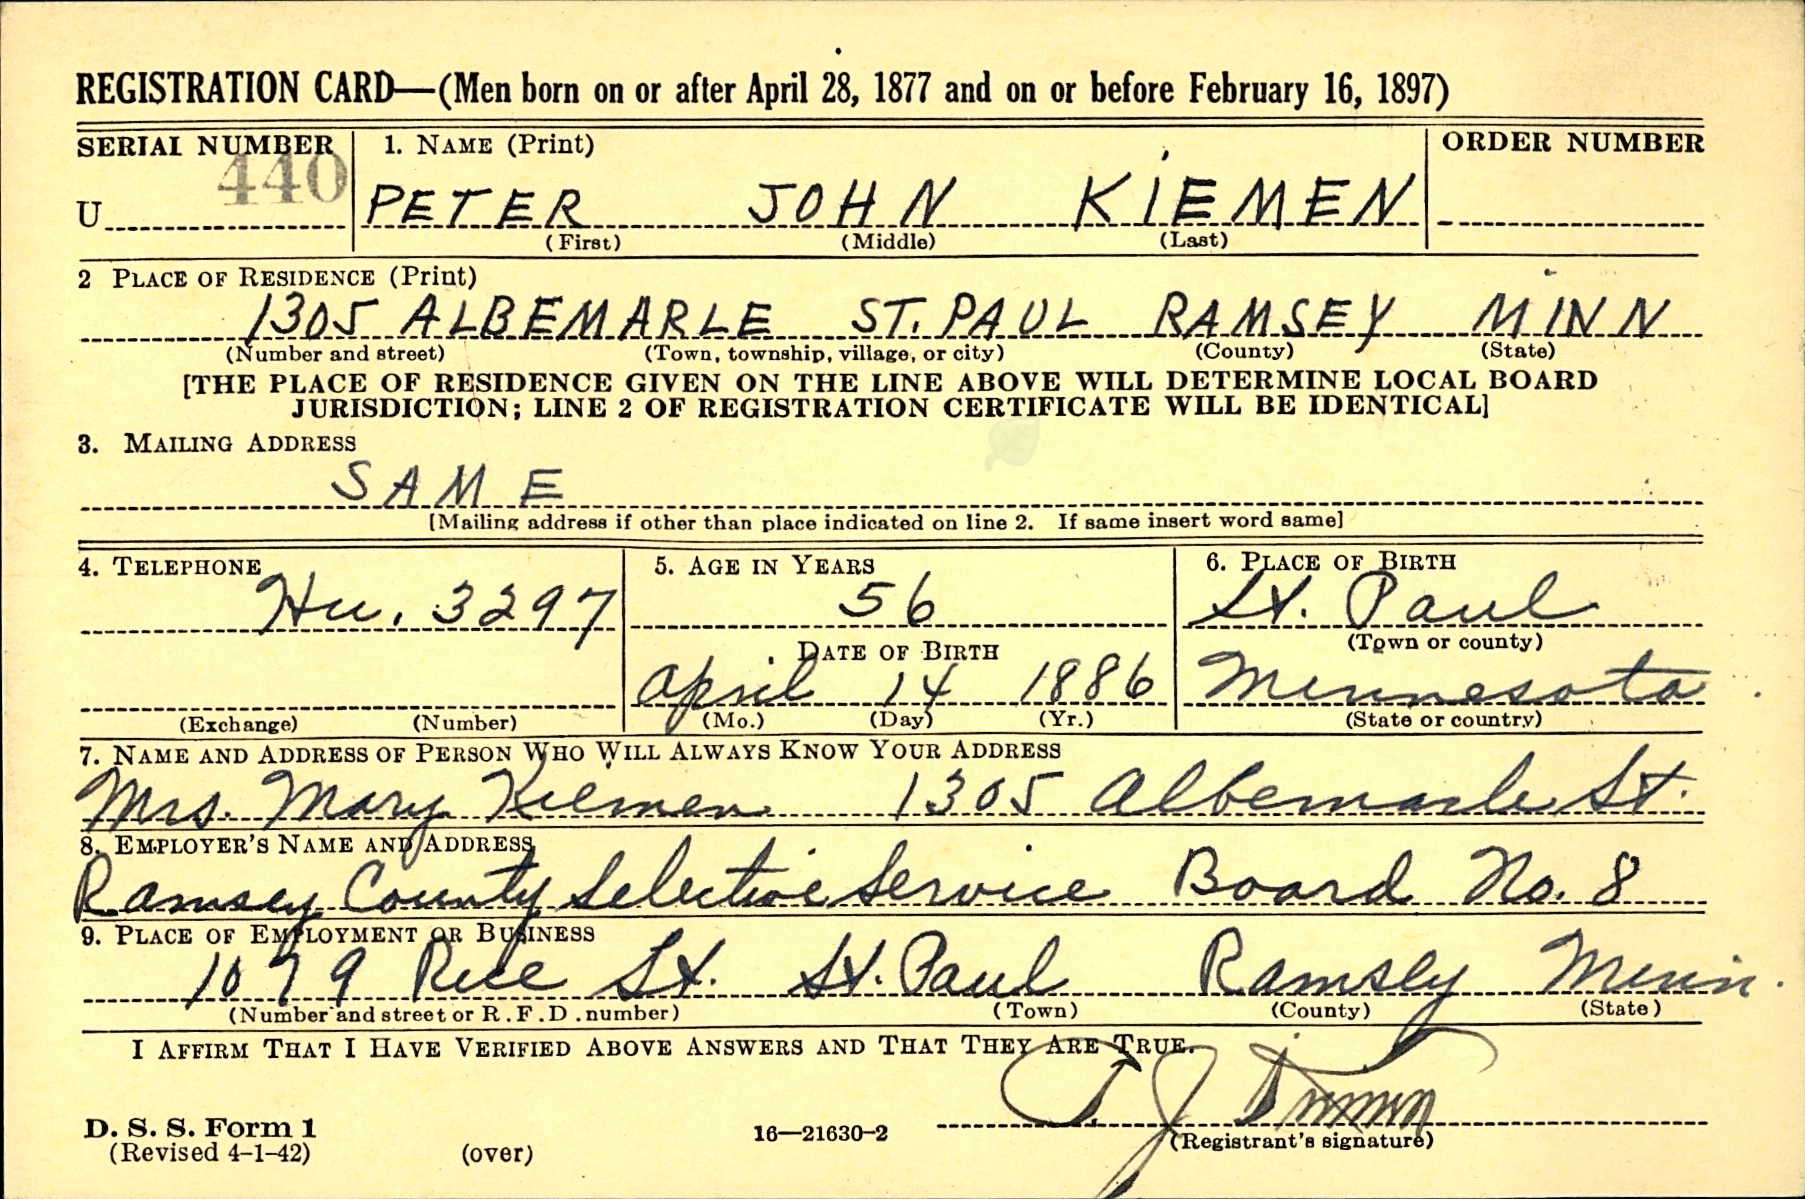 REGISTRATION CARD—(Men born on or after April 28, 1877 and on or before February 16, 1897)
SERIAL NUMBER 1. NAME (Print) ORDER NUMBER
U 440 PETER JOHN KIEMEN
(First) (Middle) (Last)
2 PLACE OF RESIDENCE (Print)
1305 ALBEMARLE ST. PAUL RAMSEY MINN
(Number and street) (Town, township, village, or city) (County) (State)
[THE PLACE OF RESIDENCE GIVEN ON THE LINE ABOVE WILL DETERMINE LOCAL BOARD
JURISDICTION; LINE 2 OF REGISTRATION CERTIFICATE WILL BE IDENTICAL]
3. MAILING ADDRESS
SAME
[Mailing address if other than place indicated on line 2. If same insert word same]
4. TELEPHONE 5. AGE IN YEARS 6. PLACE OF BIRTH
Hu. 3297 56 St. Paul
DATE OF BIRTH (Town or county)
April 14 1886 Minnesota
(Exchange) (Number) (Mo.) (Day) (Yr.) (State or country)
7. NAME AND ADDRESS OF PERSON WHO WILL ALWAYS KNOW YOUR ADDRESS
Mrs. Mary Kiemen 1305 Albemarle St.
8. EMPLOYER'S NAME AND ADDRESS
Ramsey County Selective Service Board No. 8
9. PLACE OF EMPLOYMENT OR BUSINESS
1079 Rice St. St. Paul Ramsey Minn.
(Number and street or R.F.D. number) (Town) (County) (State)
I AFFIRM THAT I HAVE VERIFIED ABOVE ANSWERS AND THAT THEY ARE TRUE.
D. S. S. Form 1
(Revised 4-1-42) (over) 16—21630-2 (Registrant's signature)